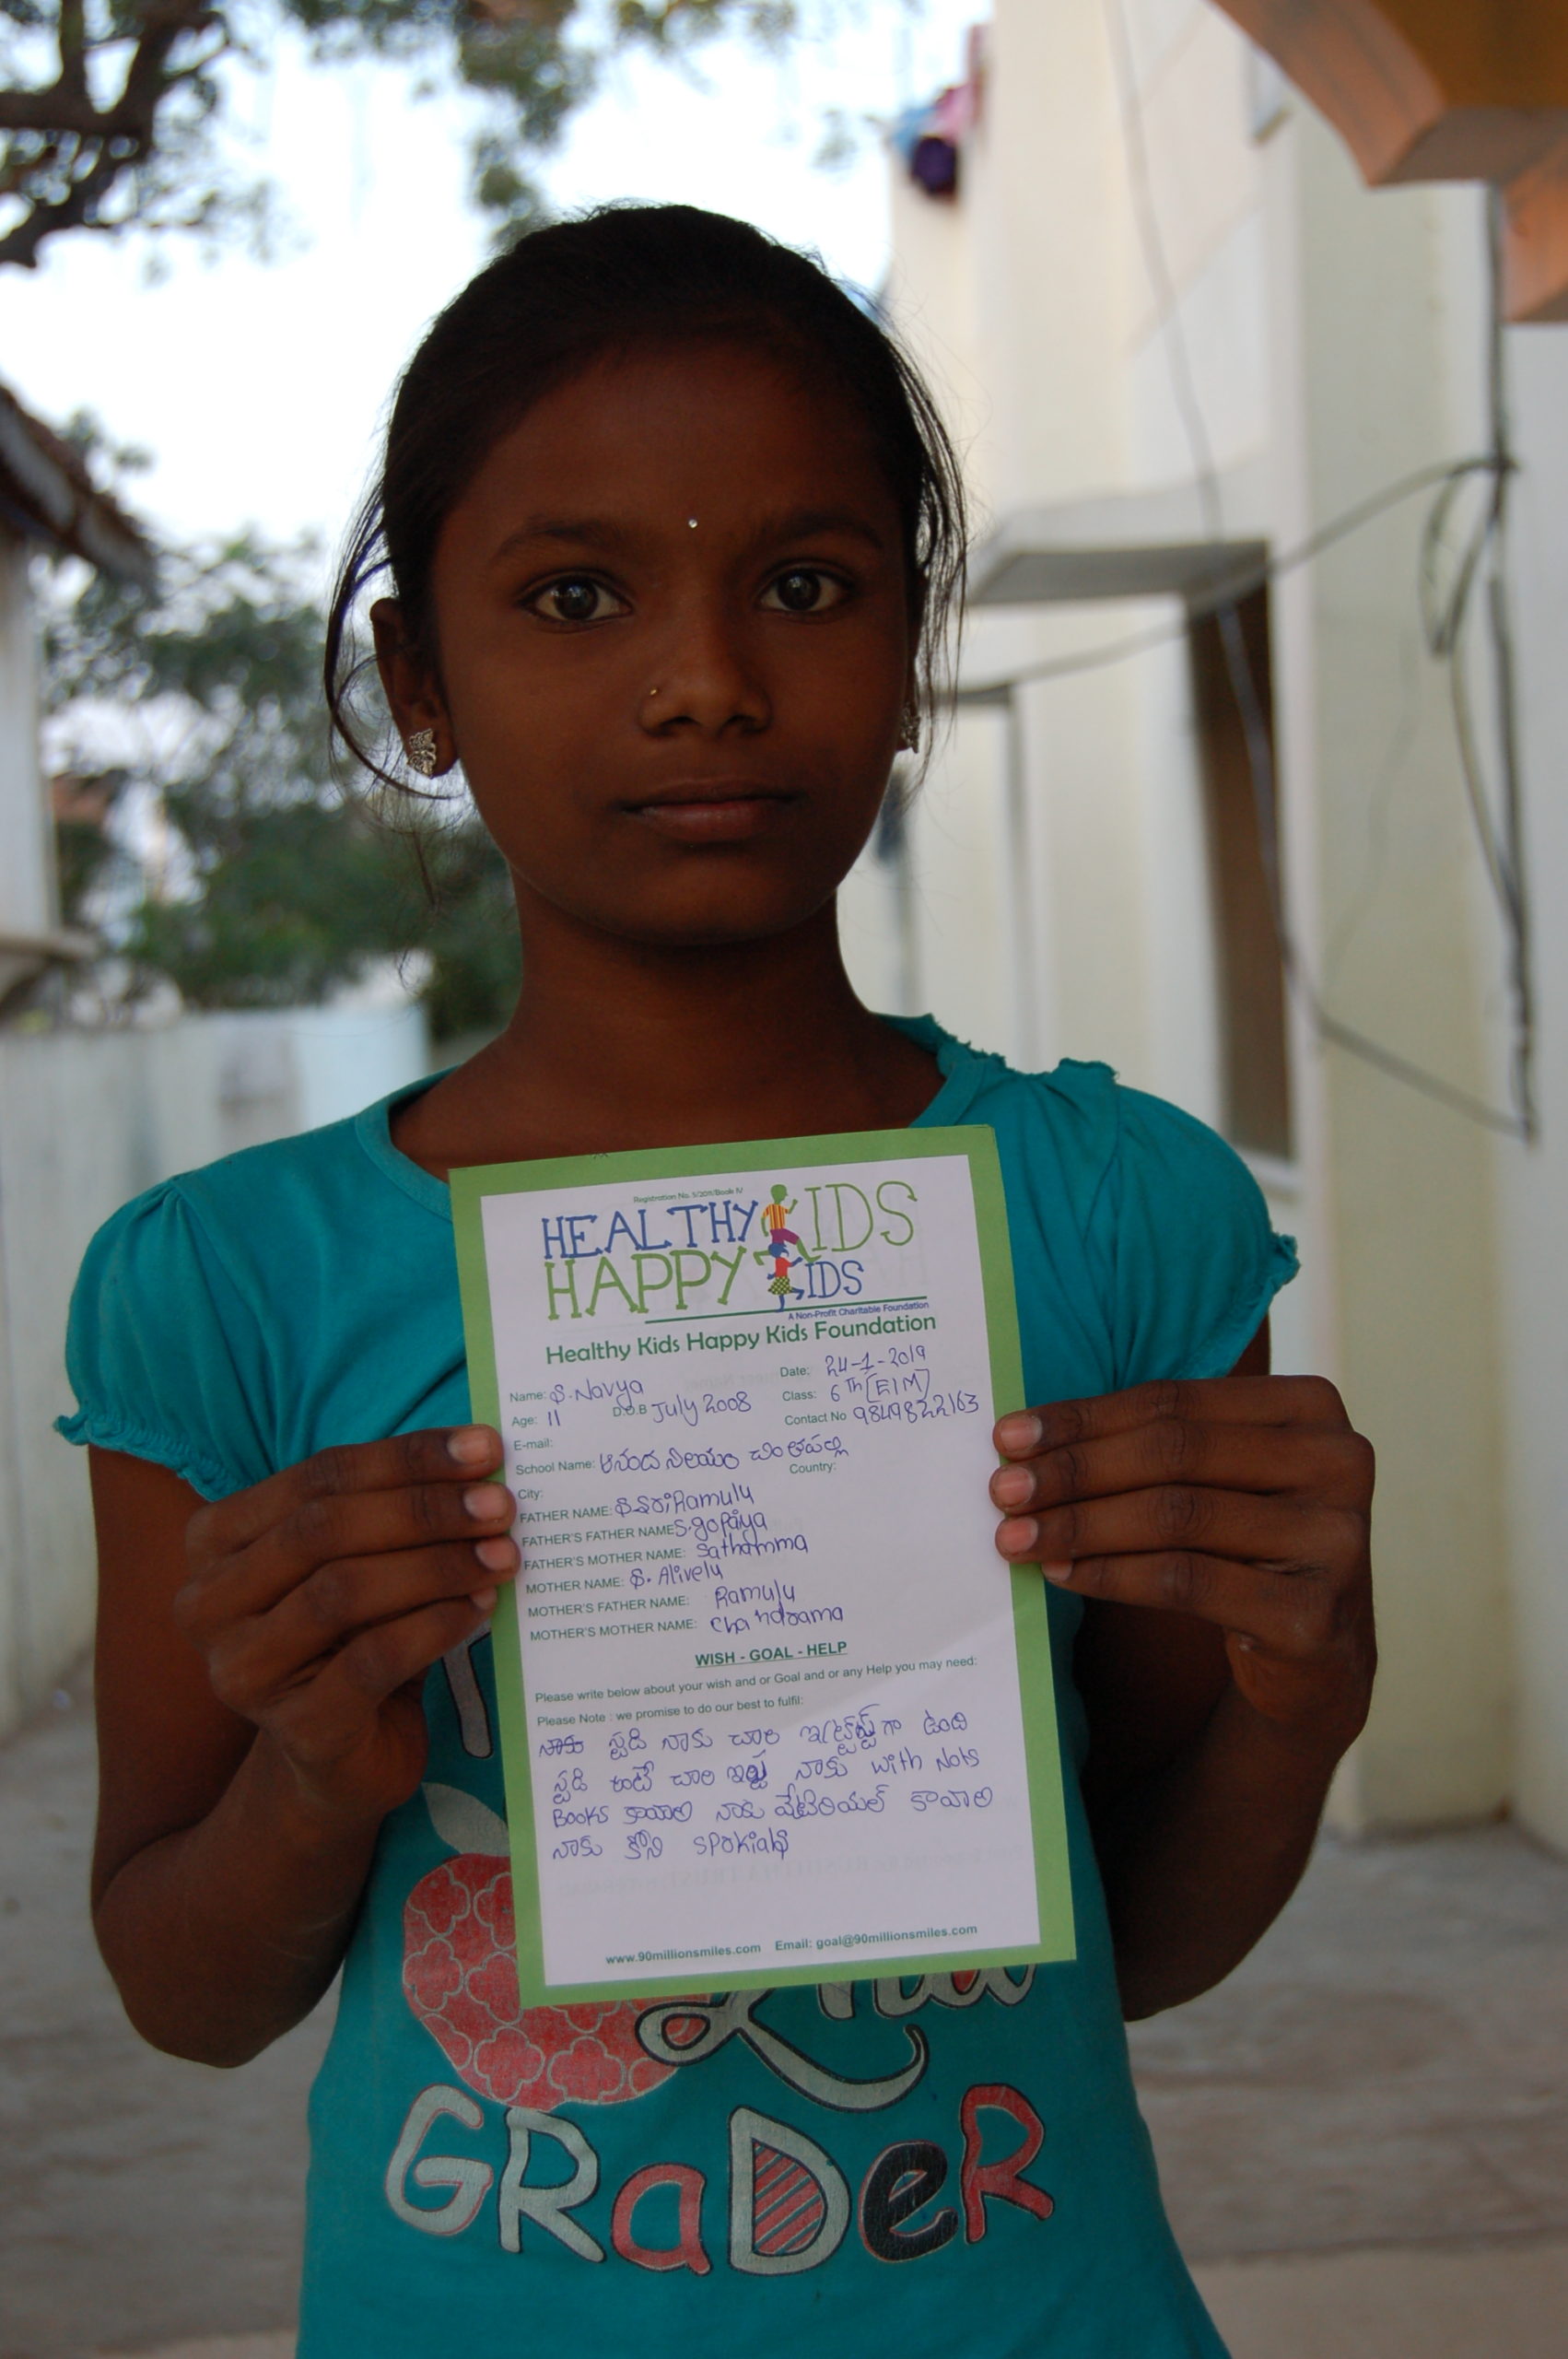 Registration No. 5/2011/Book IV
HEALTHY KIDS
HAPPY KIDS
A Non-Profit Charitable Foundation
Healthy Kids Happy Kids Foundation
Date: 24-1-2019
Name: S. Navya
Class: 6th (E/M)
Age: 11 D.O.B July 2008
Contact No 9849822163
E-mail:
School Name: ఆనంద నిలయం చింతపల్లి
City: Country:
FATHER NAME: S. Sri Ramulu
FATHER'S FATHER NAME S. gopaiya
FATHER'S MOTHER NAME: Sathamma
MOTHER NAME: S. Alivelu
MOTHER'S FATHER NAME: Ramulu
MOTHER'S MOTHER NAME: Chandrama
WISH - GOAL - HELP
Please write below about your wish and or Goal and or any Help you may need:
Please Note : we promise to do our best to fulfil:
నాకు స్టడి నాకు చాల గా ఉంది
స్టడి అంటే చాల ఇష్ట నాకు with Nots
Books కావాలి నాకు మేటిరియల్ కావాలి
నాకు
www.90millionsmiles.com Email: goal@90millionsmiles.com
2nd
GRaDeR